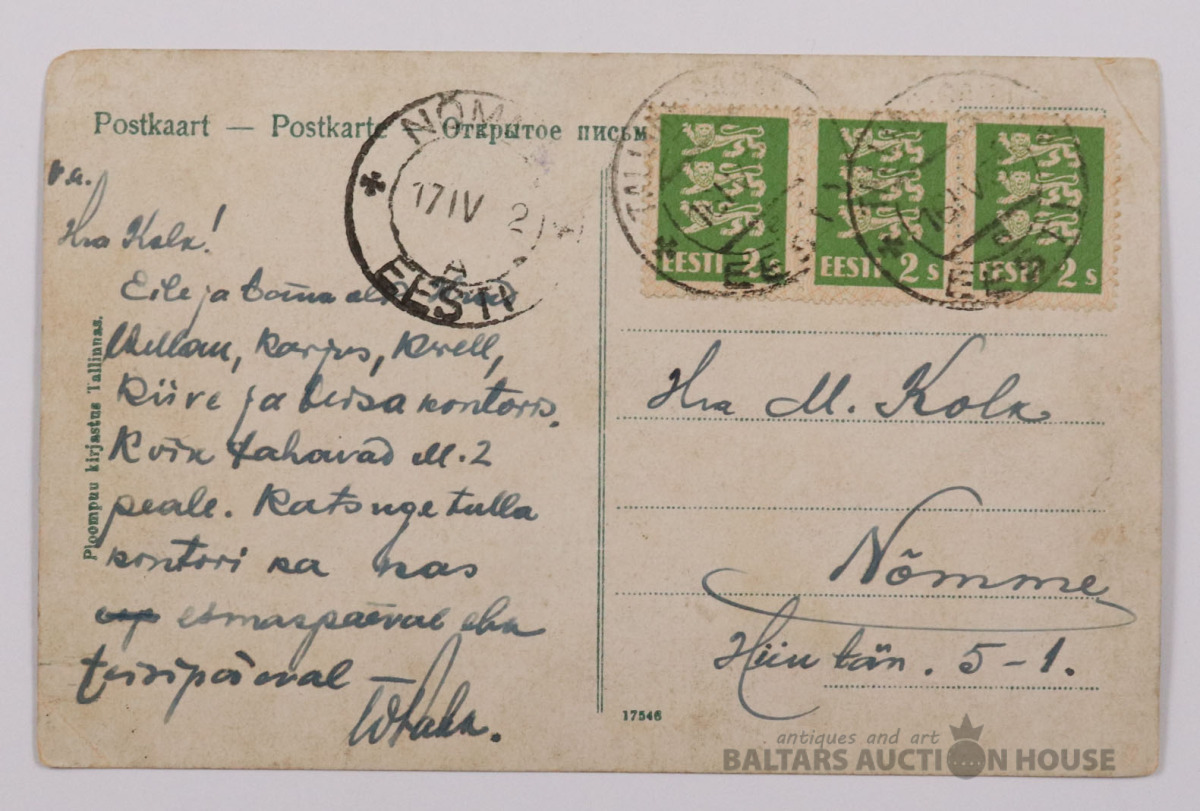 Postkaart — Postkarte — Открытое письм
v.a.
Hra Kolk!
Eile ja täna
Willan, Karjus, Krell,
Kiive ja teisa kontoris.
Kõik tahavad M.2
peale. Katsuge tulla
kontori ka kas
esmaspäeval ehk
teisipäeval —
Ploompuu kirjastus Tallinnas.
NÕMM
17 IV 2
A
EESTI
TALL
EESTI
EESTI 2 S
EESTI 2 S
EESTI 2 S
EESTI
Hra M. Kolk
Nõmme
Hiiu tän. 5-1.
17546
antiques and art
BALTARS AUCTION HOUSE